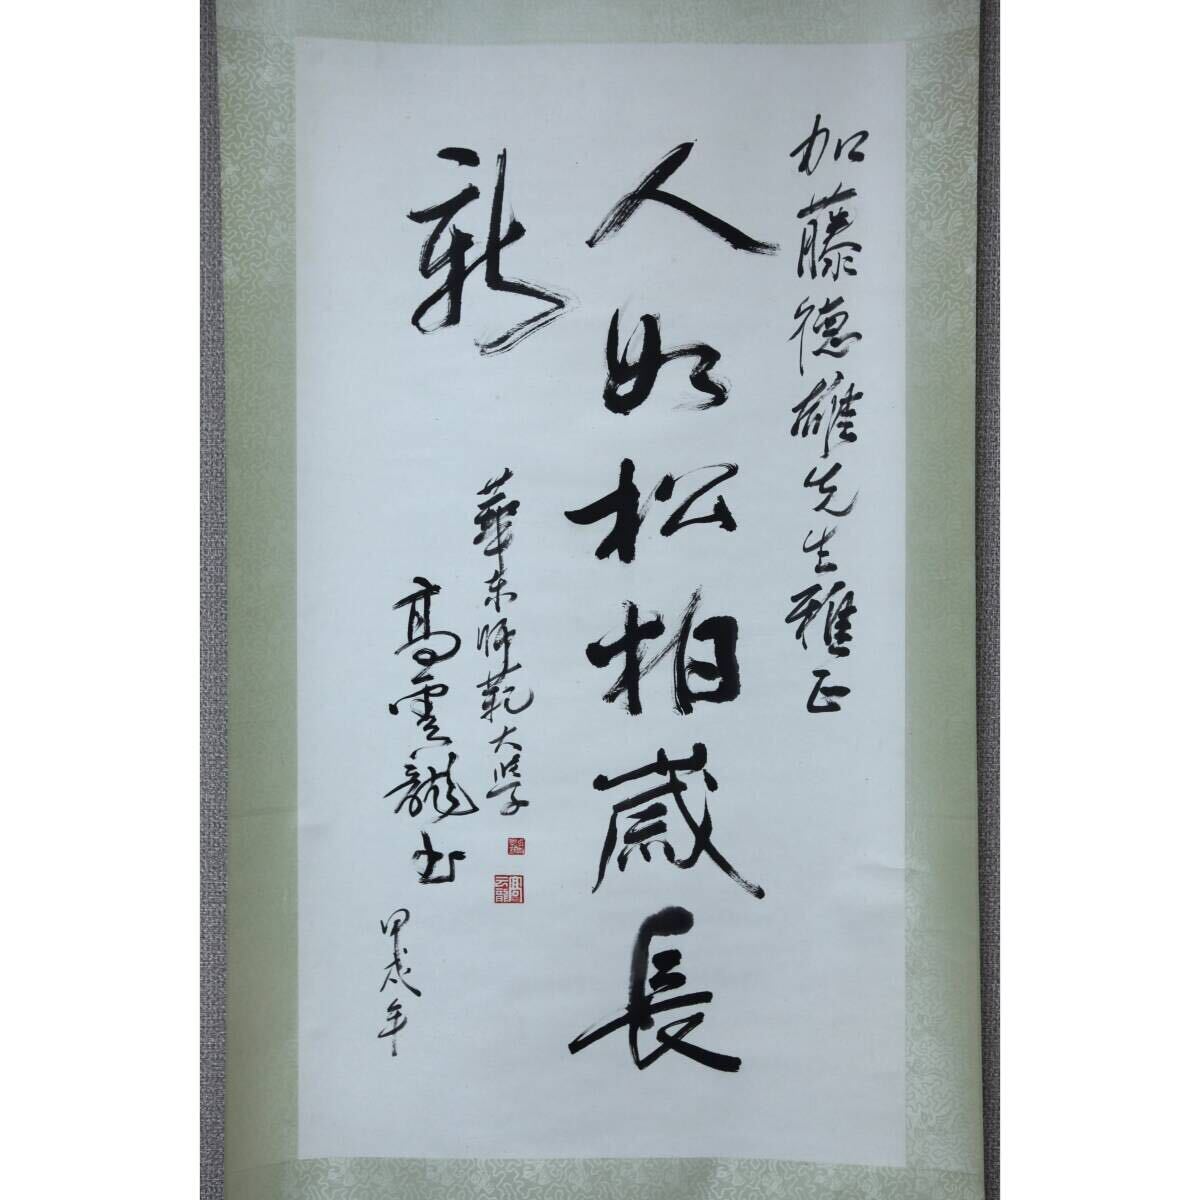 加藤德雄先生雅正
人如松柏歲長
新
華东師範大學
高雲龍书
甲戌年